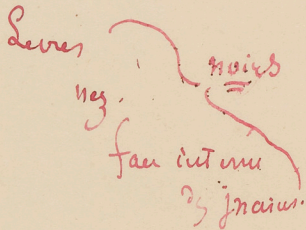 Levres
noirs
nez.
face interne
des mains.